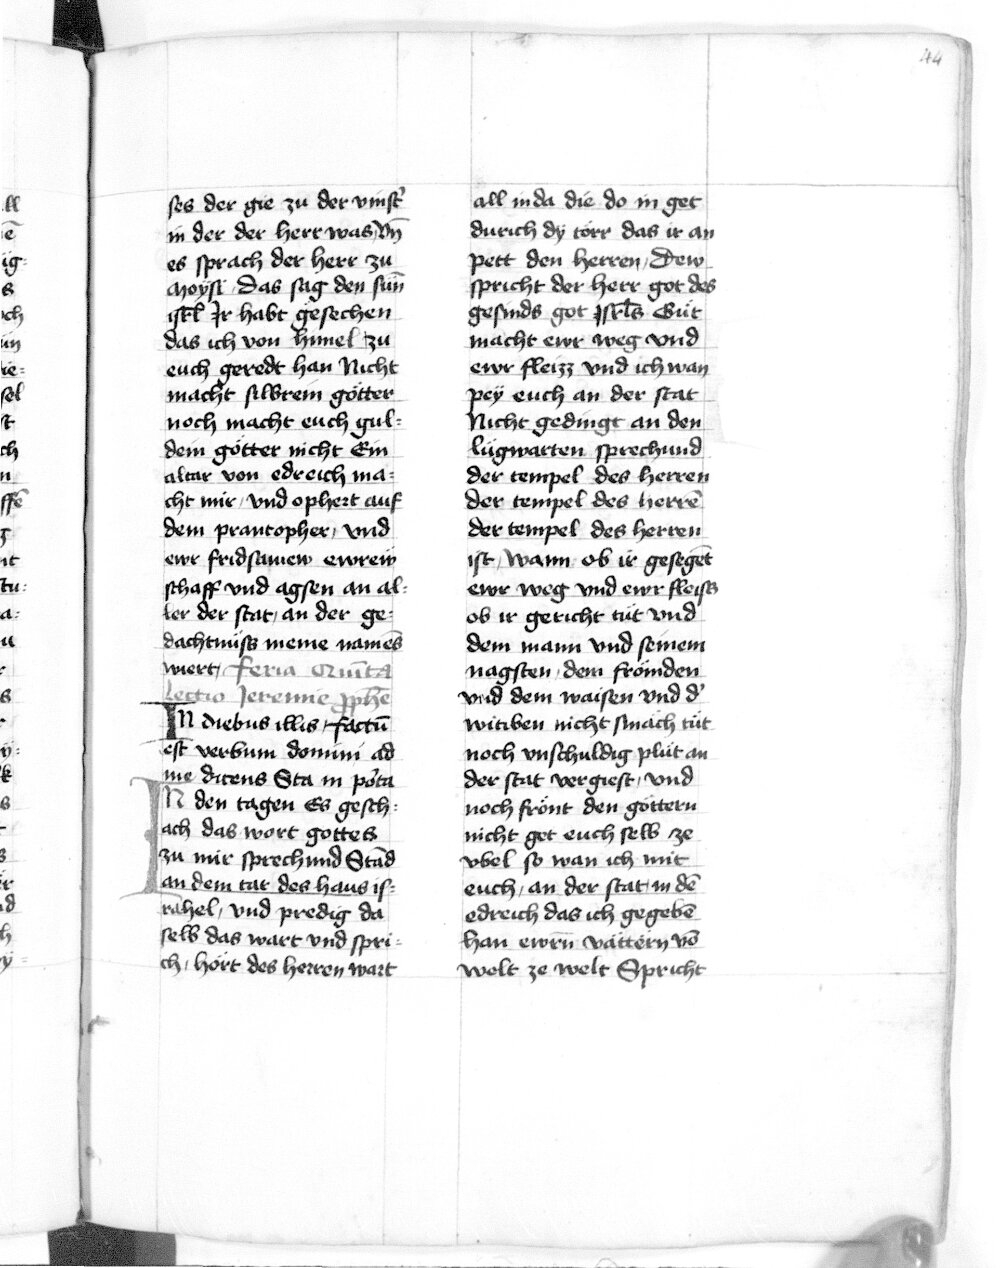 44
ses der gie zu der vinst᷑
in der der herr was, Vn̄
es sprach der herr zu
Moysi, Das sag den sün̄
isrl̄ Jr habt gesechen
das ich von himel zu
euch geredt han Nicht
macht silbrein götter
noch macht euch gul-
dein götter nicht Ein
altar von edreich ma-
cht mir, vnd ophert auf
dem prantopher, vnd
ewr fridsamew ewrew
schaff vnd agsen an al-
ler der stat, an der ge-
dachtnüss meine namēs
wiert, feria Quīta
Lectio Jeremie ꝓphē
IN diebus illis, factū
est verbum domini ad
me dicens Sta in po᷑ta
IN den tagen Es gesch-
ach das wort gottes
zu mir sprechund Stād
an dem tar des haus is-
rahel, vnd predig da
selb das wart vnd spri-
ch, hört des herren wart
all inda die do in get
durich dÿ törr das ir an
pett den herren, Dew
spricht der herr got des
gesinds got Jsrl̄s Güt
macht ewr weg vnd
ewr fleizz vnd ich wan
peÿ euch an der stat
Nicht gedingt an den
lügwarten sprechund
der tempel des herren
der tempel des herrē
der tempel des herren
ist, wann ob ir gesegēt
ewr weg vnd ewr fleiss
ob ir gericht tüt vnd
dem mann vnd seinem
nagsten, dem frömden
vnd dem waisen vnd d᷑
witiben nicht smäch tüt
noch vnschuldig plüt an
der stat vergiest, vnd
noch frönt den göttern
nicht get euch selb ze
vbel so wan ich mit
euch, an der stat, in dē
edreich das ich gegebē
han ewrn̄ vättern vō
welt ze welt Spricht